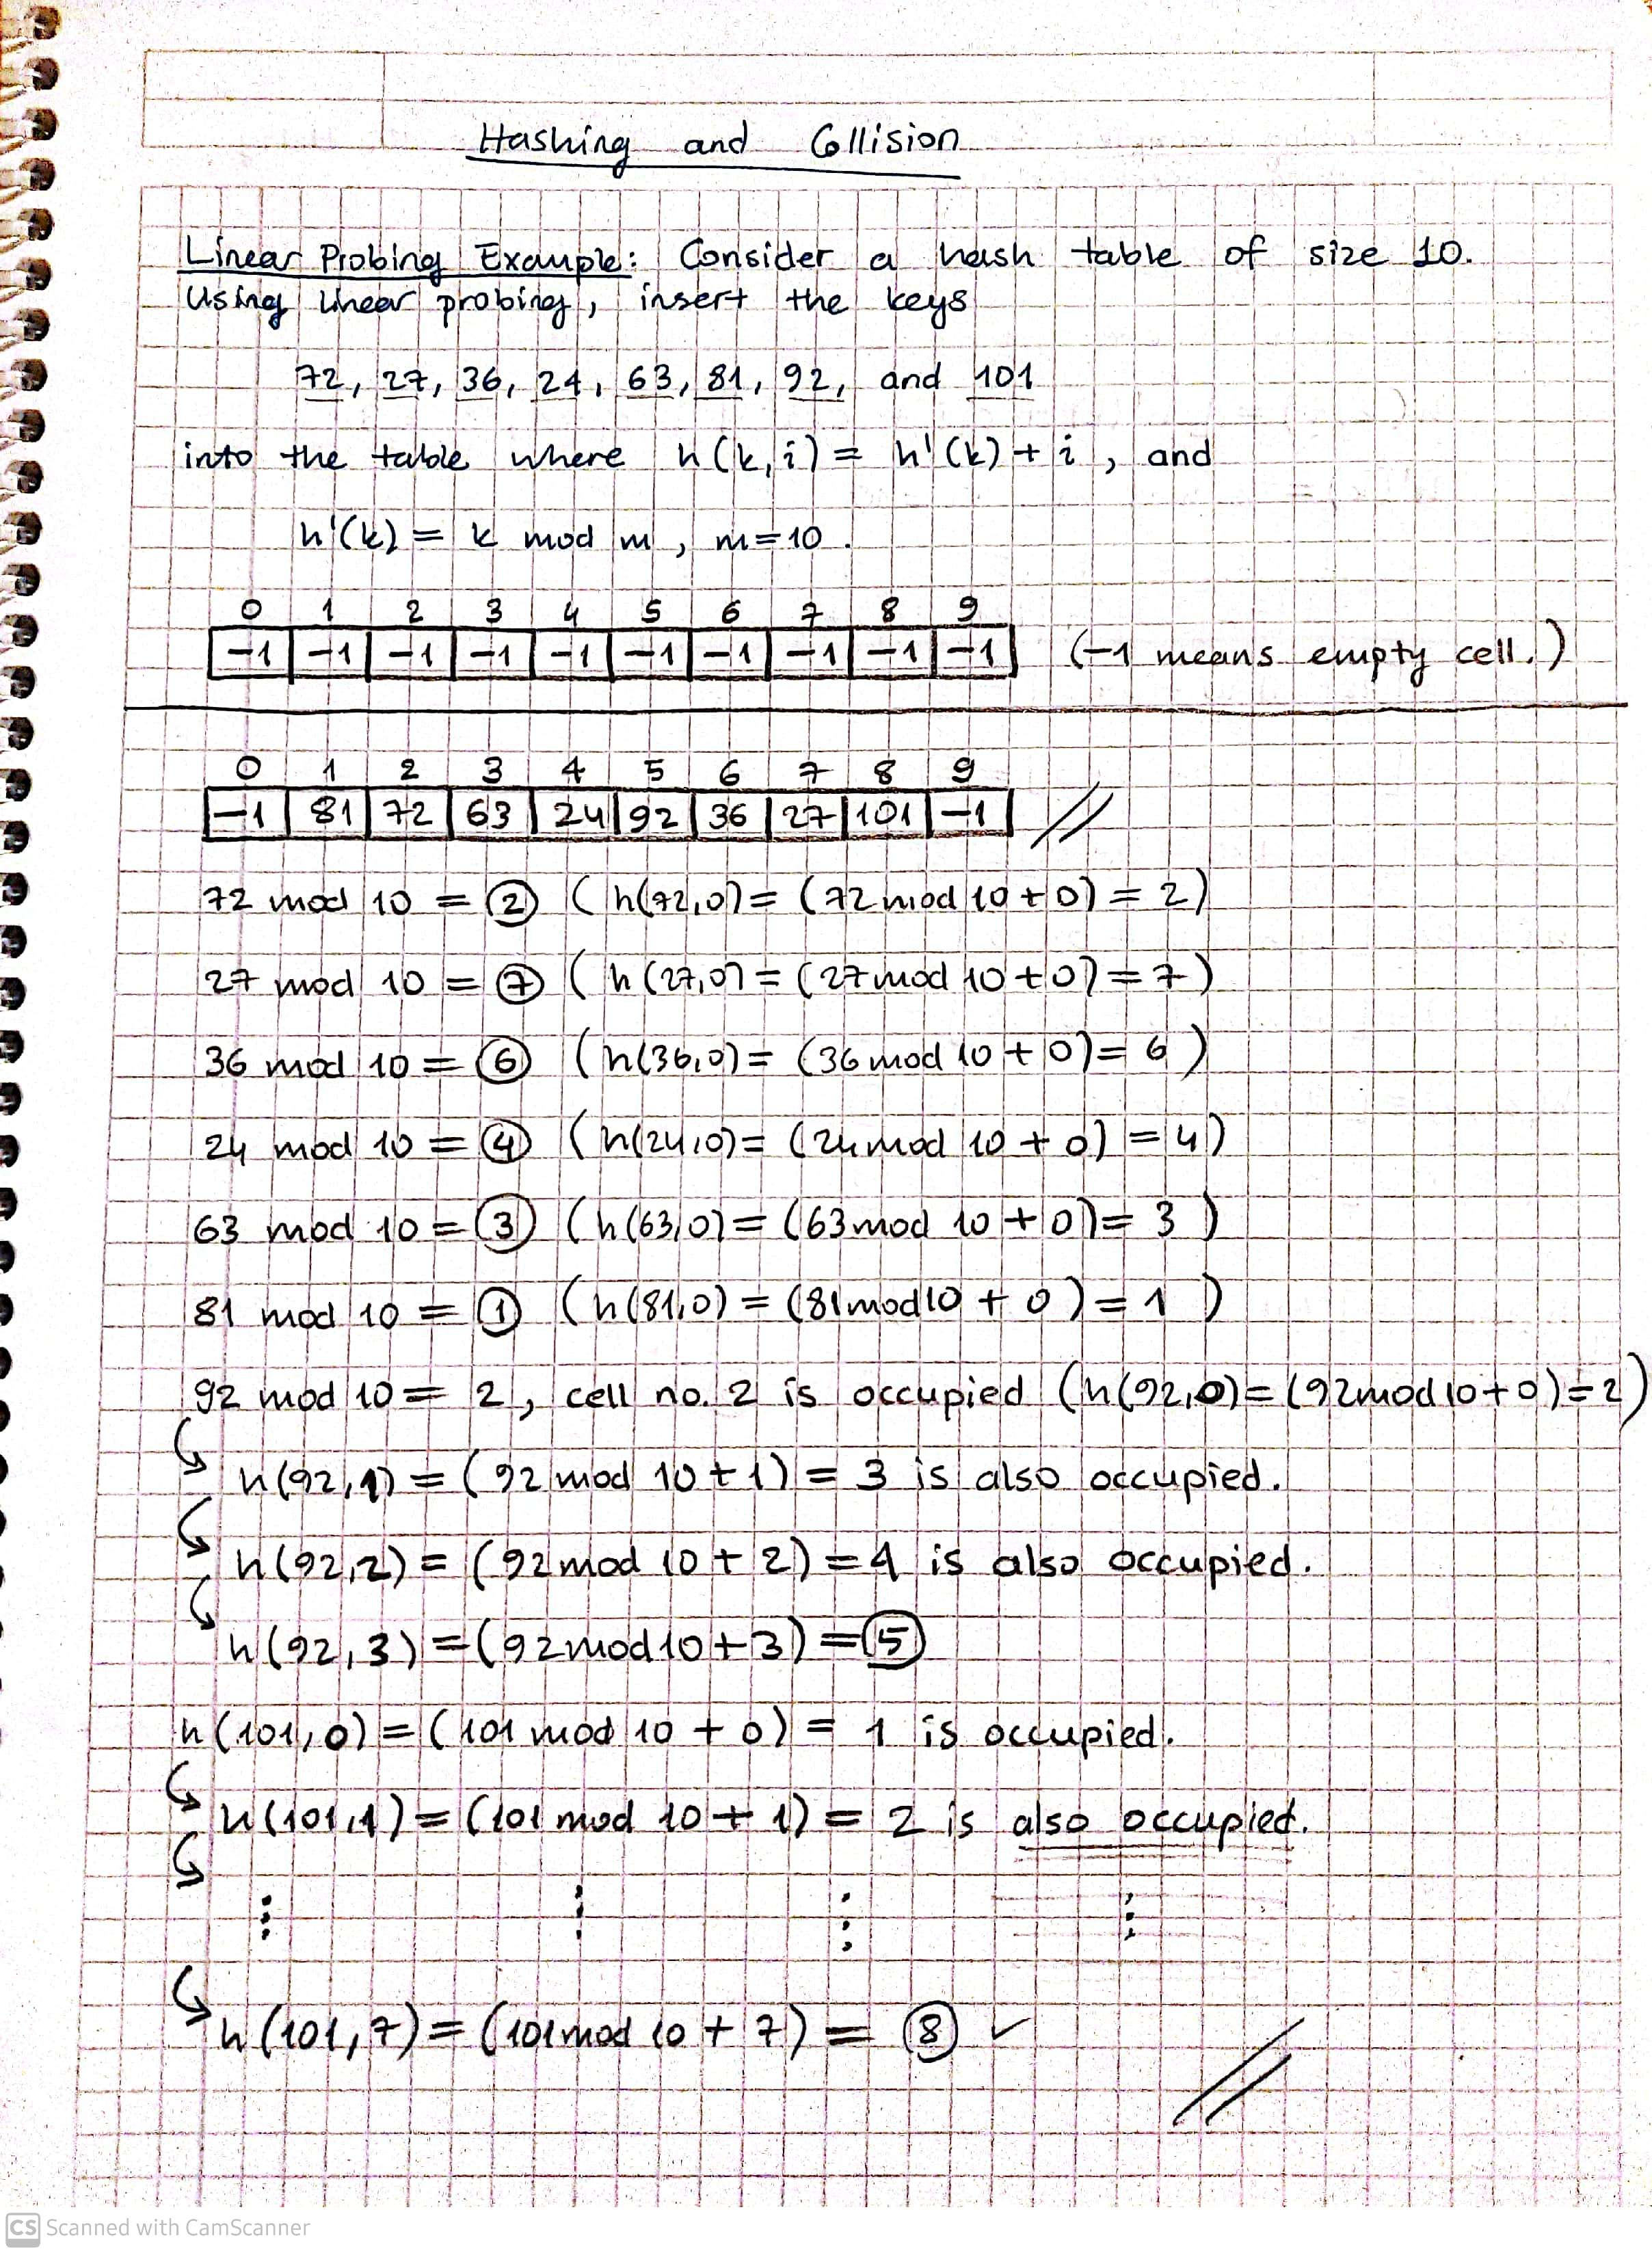 Hashing and Collision
Linear Probing Example: Consider a hash table of size 10.
Using linear probing, insert the keys
72, 27, 36, 24, 63, 81, 92, and 101
into the table where h(k,i) = h'(k) + i, and
h'(k) = k mod m, m=10.
0 1 2 3 4 5 6 7 8 9
-1 -1 -1 -1 -1 -1 -1 -1 -1 -1 (-1 means empty cell.)
0 1 2 3 4 5 6 7 8 9
-1 81 72 63 24 92 36 27 101 -1 //
72 mod 10 = 2 (h(72,0) = (72 mod 10 + 0) = 2)
27 mod 10 = 7 (h(27,0) = (27 mod 10 + 0) = 7)
36 mod 10 = 6 (h(36,0) = (36 mod 10 + 0) = 6)
24 mod 10 = 4 (h(24,0) = (24 mod 10 + 0) = 4)
63 mod 10 = 3 (h(63,0) = (63 mod 10 + 0) = 3)
81 mod 10 = 1 (h(81,0) = (81 mod 10 + 0) = 1)
92 mod 10 = 2, cell no. 2 is occupied (h(92,0) = (92 mod 10 + 0) = 2)
h(92,1) = (92 mod 10 + 1) = 3 is also occupied.
h(92,2) = (92 mod 10 + 2) = 4 is also occupied.
h(92,3) = (92 mod 10 + 3) = 5
h(101,0) = (101 mod 10 + 0) = 1 is occupied.
h(101,1) = (101 mod 10 + 1) = 2 is also occupied.
⋮ ⋮ ⋮ ⋮
h(101,7) = (101 mod 10 + 7) = 8 ✓
//
CS Scanned with CamScanner